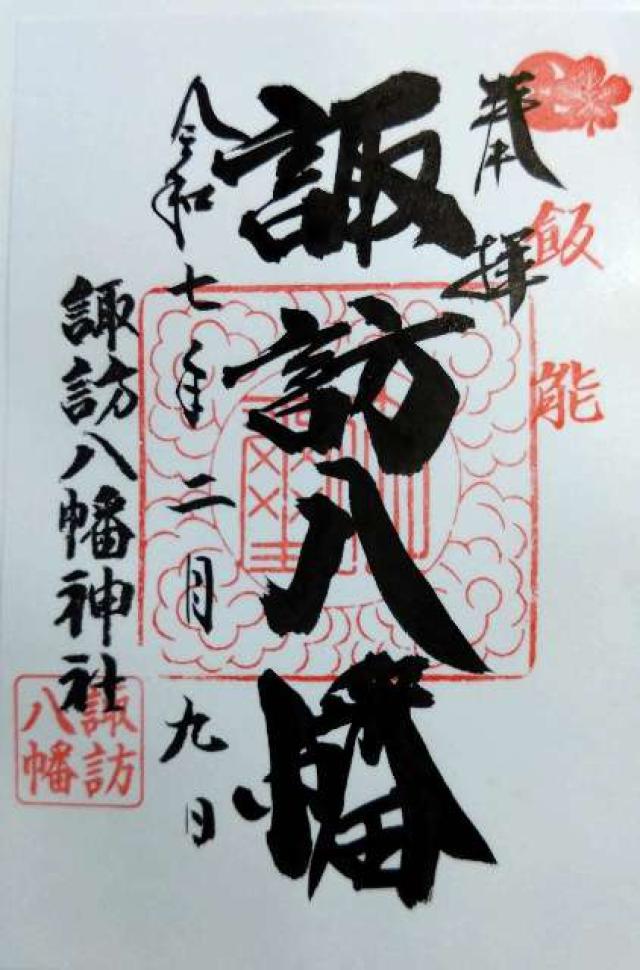 奉拝
飯能
諏訪八幡
令和七年二月九日
諏訪八幡神社
諏訪
八幡